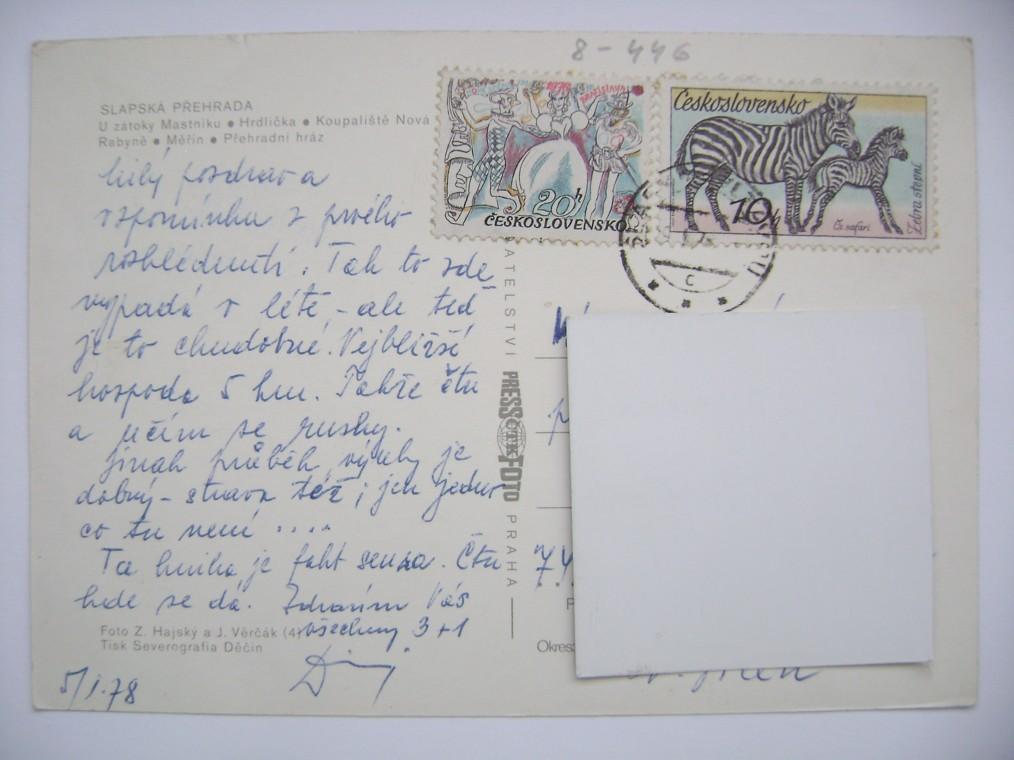 8-446
SLAPSKÁ PŘEHRADA
U zátoky Mastníku ● Hrdlička ● Koupaliště Nová
Rabyně ● Měřín ● Přehradní hráz
Milý pozdrav a
vzpomínku z prvého
rozhlédnutí. Tak to zde
vypadá v létě - ale teď
je to chudobné. Nejbližší
hospoda 5 km. Takže čtu
a učím se rusky.
Jinak průběh výuky je
dobrý - strava též; jen jedno
co tu není ....
Ta kniha je fakt senza. Čtu
kde se dá. Zdravím Vás
všechny 3+1
Foto Z. Hajský a J. Věrčák (4)
Tisk Severografia Děčín
5/1.78
ČESKOSLOVENSKO
20h
BRATISLAVA
Československo
10h
Čs. safari
Zebra stepní
C
ATELSTVÍ PRESSFOTO PRAHA
74
Okres